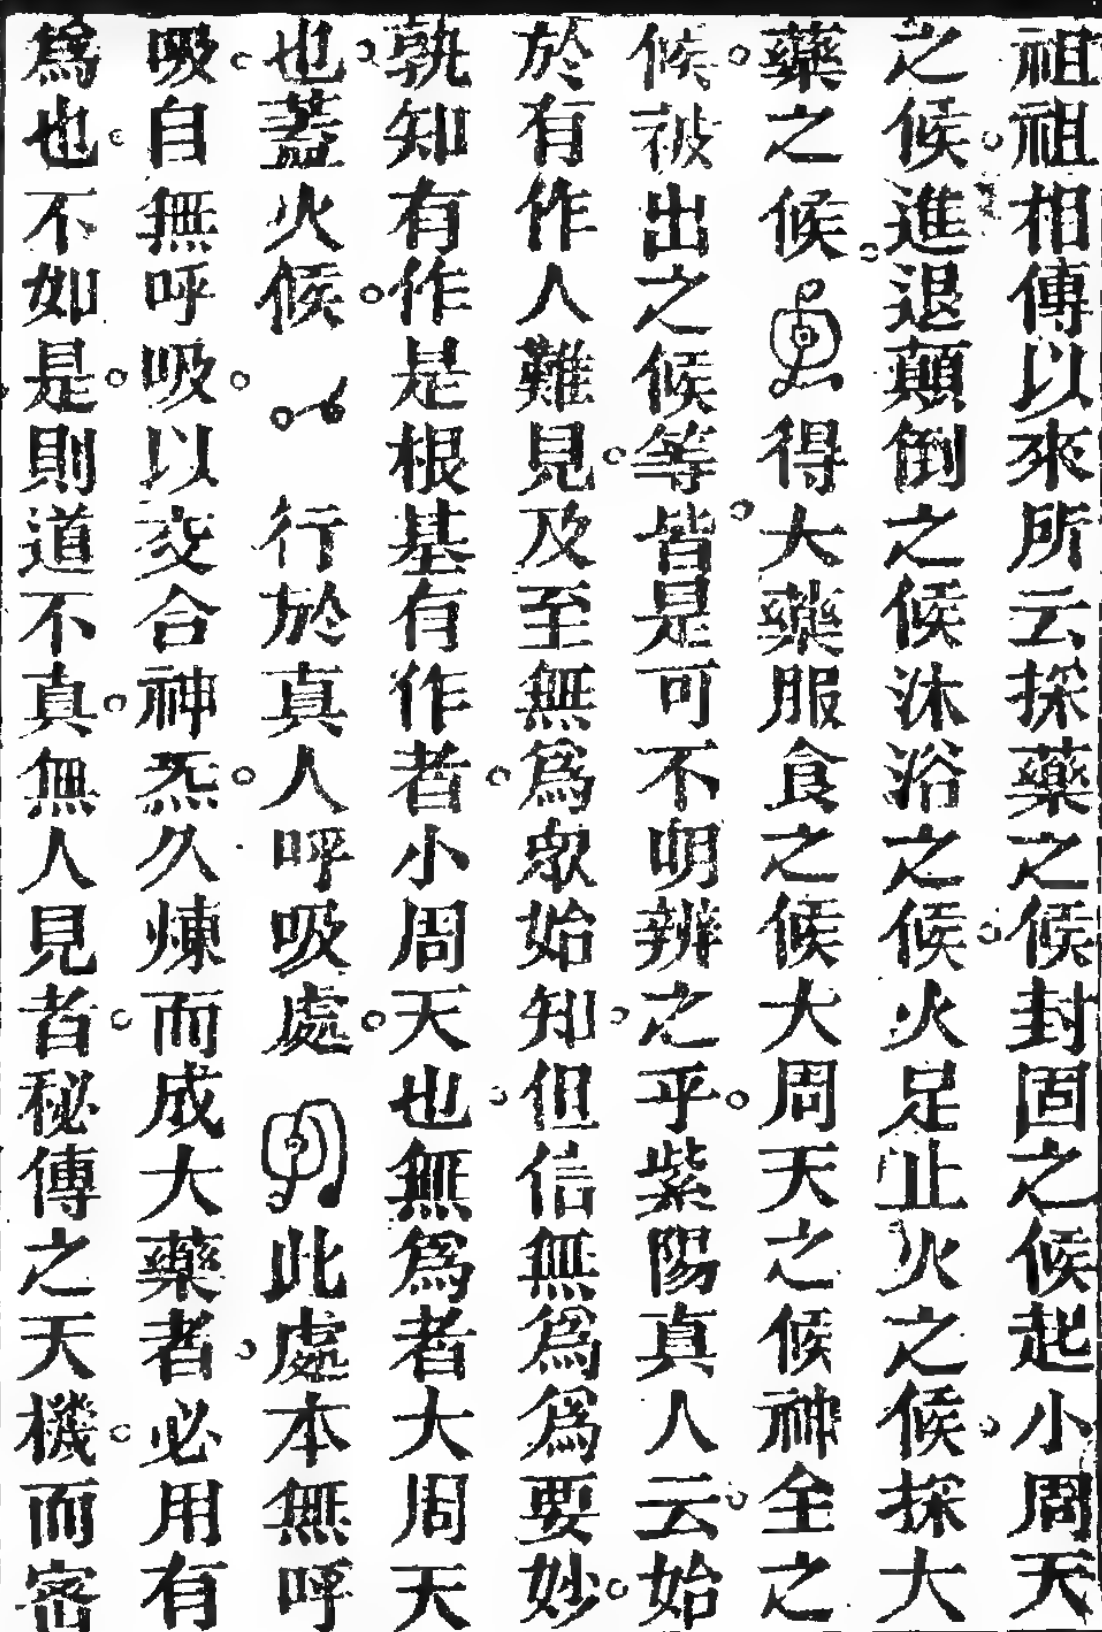 祖祖相傳以來所云採藥之候封固之候起小周天
之候進退顛倒之候沐浴之候火足止火之候採大
藥之候得大藥服食之候大周天之候神全之
候被出之候等皆是可不明辨之乎紫陽真人云始
於有作人難見及至無爲衆始知但信無爲爲要妙
孰知有作是根基有作者小周天也無爲者大周天
也蓋火候行於真人呼吸處此處本無呼
吸自無呼吸以交合神炁久煉而成大藥者必用有
爲也不如是則道不真無人見者秘傳之天機而密